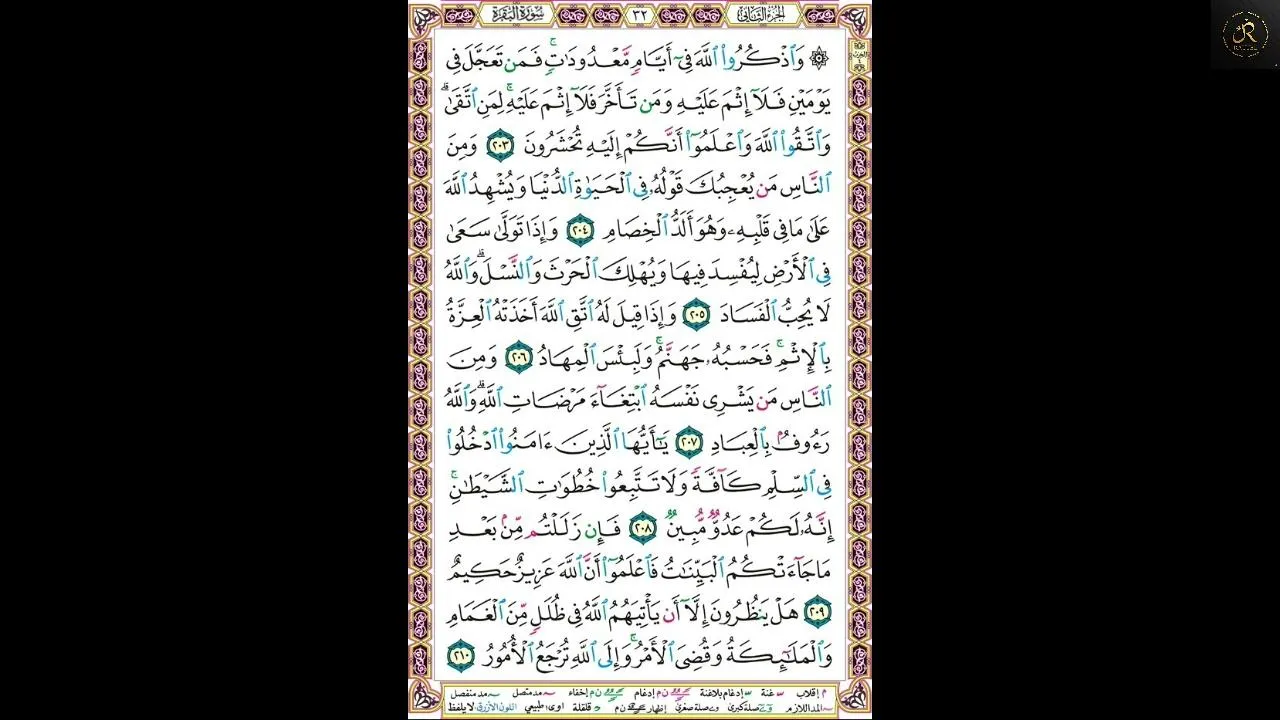 الجزء الثاني ٣٢ سورة البقرة
۞ وَٱذْكُرُوا۟ ٱللَّهَ فِىٓ أَيَّامٍ مَّعْدُودَٰتٍ ۚ فَمَن تَعَجَّلَ فِى
يَوْمَيْنِ فَلَآ إِثْمَ عَلَيْهِ وَمَن تَأَخَّرَ فَلَآ إِثْمَ عَلَيْهِ ۚ لِمَنِ ٱتَّقَىٰ ۗ
وَٱتَّقُوا۟ ٱللَّهَ وَٱعْلَمُوٓا۟ أَنَّكُمْ إِلَيْهِ تُحْشَرُونَ ٢٠٣ وَمِنَ
ٱلنَّاسِ مَن يُعْجِبُكَ قَوْلُهُۥ فِى ٱلْحَيَوٰةِ ٱلدُّنْيَا وَيُشْهِدُ ٱللَّهَ
عَلَىٰ مَا فِى قَلْبِهِۦ وَهُوَ أَلَدُّ ٱلْخِصَامِ ٢٠٤ وَإِذَا تَوَلَّىٰ سَعَىٰ
فِى ٱلْأَرْضِ لِيُفْسِدَ فِيهَا وَيُهْلِكَ ٱلْحَرْثَ وَٱلنَّسْلَ ۗ وَٱللَّهُ
لَا يُحِبُّ ٱلْفَسَادَ ٢٠٥ وَإِذَا قِيلَ لَهُ ٱتَّقِ ٱللَّهَ أَخَذَتْهُ ٱلْعِزَّةُ
بِٱلْإِثْمِ ۚ فَحَسْبُهُۥ جَهَنَّمُ ۚ وَلَبِئْسَ ٱلْمِهَادُ ٢٠٦ وَمِنَ
ٱلنَّاسِ مَن يَشْرِى نَفْسَهُ ٱبْتِغَآءَ مَرْضَاتِ ٱللَّهِ ۗ وَٱللَّهُ
رَءُوفٌۢ بِٱلْعِبَادِ ٢٠٧ يَٰٓأَيُّهَا ٱلَّذِينَ ءَامَنُوا۟ ٱدْخُلُوا۟
فِى ٱلسِّلْمِ كَآفَّةً وَلَا تَتَّبِعُوا۟ خُطُوَٰتِ ٱلشَّيْطَٰنِ ۚ
إِنَّهُۥ لَكُمْ عَدُوٌّ مُّبِينٌ ٢٠٨ فَإِن زَلَلْتُم مِّنۢ بَعْدِ
مَا جَآءَتْكُمُ ٱلْبَيِّنَٰتُ فَٱعْلَمُوٓا۟ أَنَّ ٱللَّهَ عَزِيزٌ حَكِيمٌ
٢٠٩ هَلْ يَنظُرُونَ إِلَّآ أَن يَأْتِيَهُمُ ٱللَّهُ فِى ظُلَلٍ مِّنَ ٱلْغَمَامِ
وَٱلْمَلَٰٓئِكَةُ وَقُضِىَ ٱلْأَمْرُ ۚ وَإِلَى ٱللَّهِ تُرْجَعُ ٱلْأُمُورُ ٢١٠
م إقلاب غنة إدغام بلاغنة ن م إدغام ن م إخفاء مد متصل مد منفصل
المد اللازم صلة كبرى صلة صغرى إظهار ن م قلقلة اوى: طبيعي اللون الأزرق: لا يلفظ